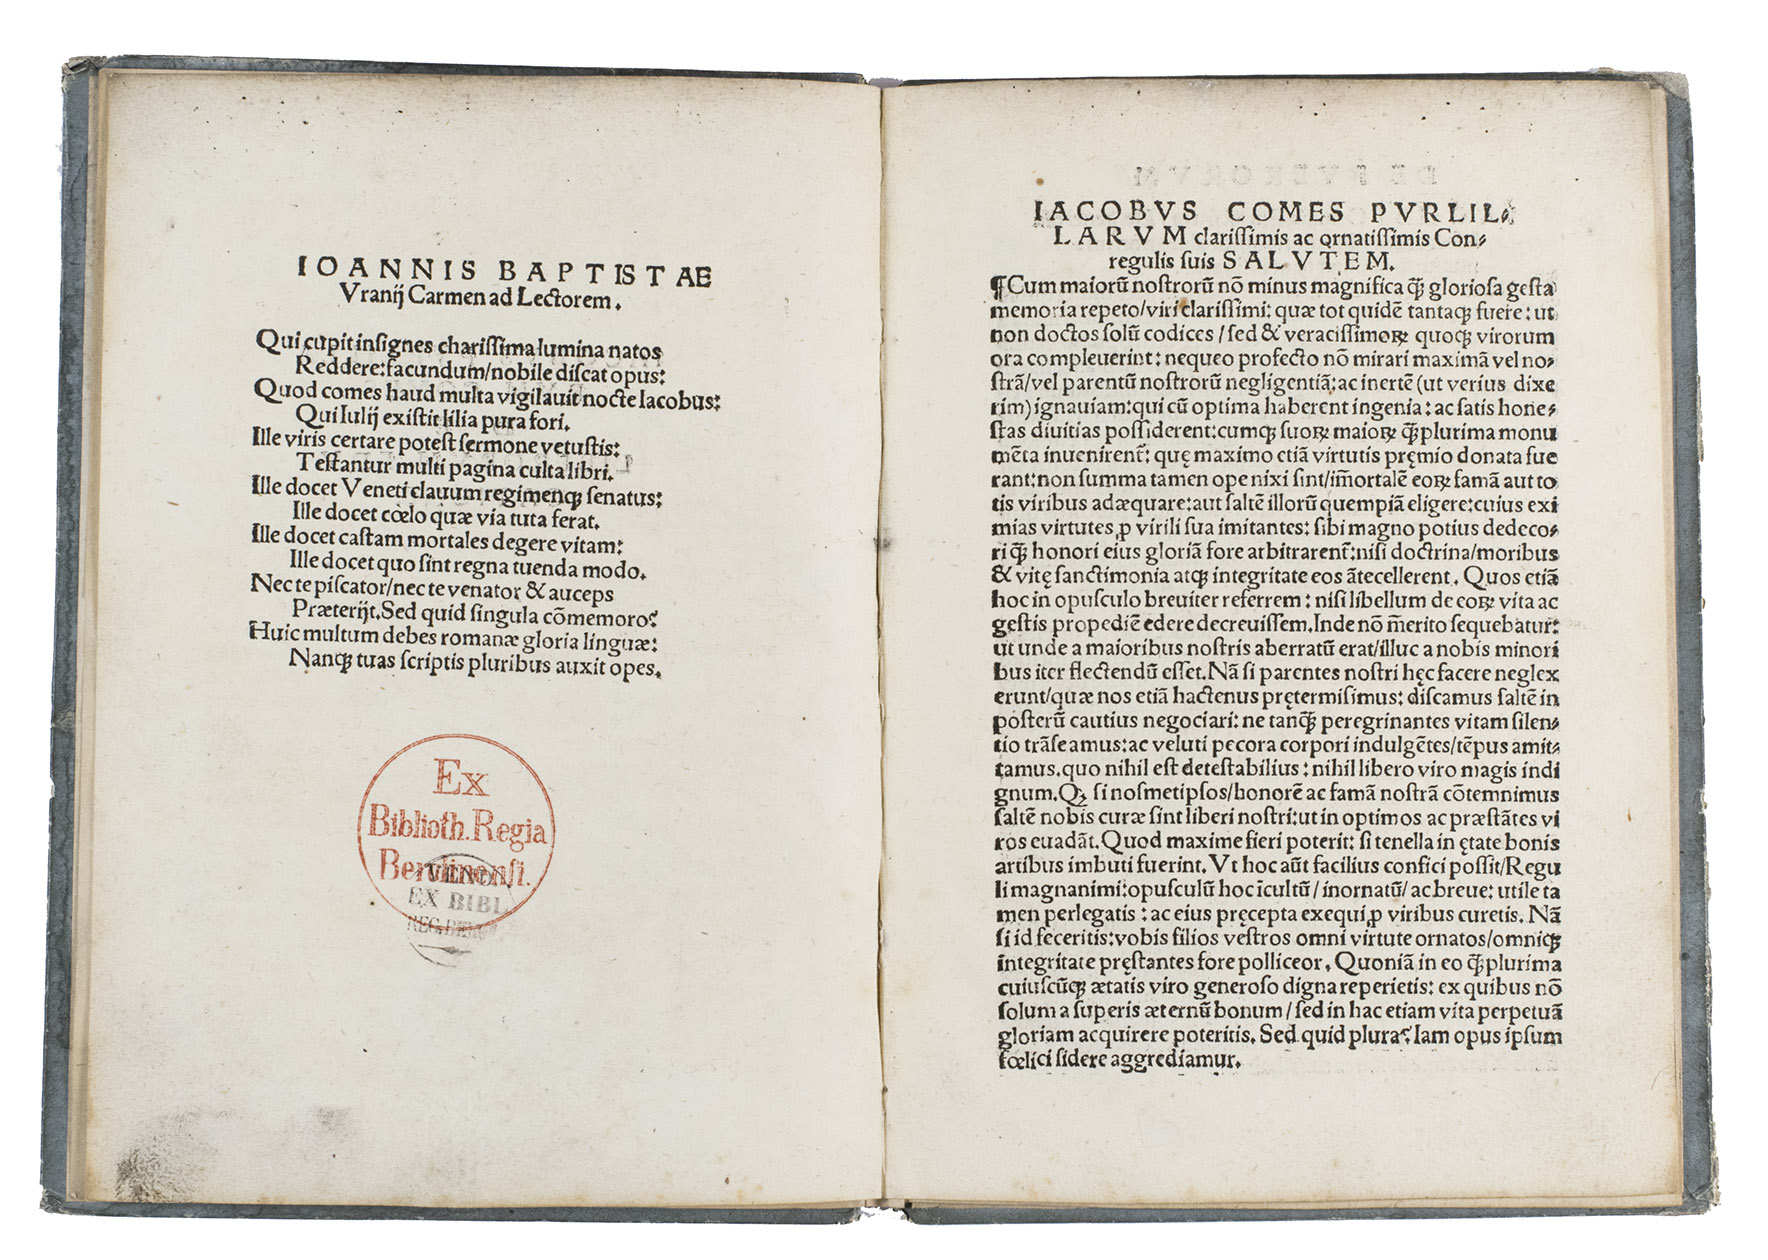 IOANNIS BAPTISTAE
Vranij Carmen ad Lectorem.
Qui cupit insignes charissima lumina natos
Reddere: facundum/nobile discat opus:
Quod comes haud multa vigilauit nocte Iacobus:
Qui Iulij existit lilia pura fori.
Ille viris certare potest sermone vetustis:
Testantur multi pagina culta libri.
Ille docet Veneti clauum regimenqꝫ senatus:
Ille docet cœlo quæ via tuta ferat.
Ille docet castam mortales degere vitam:
Ille docet quo sint regna tuenda modo.
Nec te piscator/nec te venator & auceps
Præterijt. Sed quid singula cōmemoro?
Huic multum debes romanæ gloria linguæ:
Nanqꝫ tuas scriptis pluribus auxit opes.
Ex
Biblioth. Regia
Berolinensi.
EX BIBL.
IACOBVS COMES PVRLIL-
LARVM clarissimis ac ornatissimis Con-
regulis suis SALVTEM.
¶Cum maiorū nostrorū nō minus magnifica qꝫ̄ gloriosa gesta
memoria repeto/viri clarissimi: quæ tot quidē tantaqꝫ fuere: ut
non doctos solū codices/sed & veracissimoꝝ quoqꝫ virorum
ora compleuerint: nequeo profecto nō mirari maximā vel no-
strā/vel parentū nostrorū negligentiā: ac inertē (ut verius dixe
rim) ignauiam: qui cū optima haberent ingenia: ac satis hone-
stas diuitias possiderent: cumqꝫ suoꝝ maioꝝ qꝫ̄plurima monu
mēta inuenirent: quę maximo etiā virtutis pręmio donata fue
rant: non summa tamen ope nixi sint/īmortalē eoꝝ famā aut to
tis viribus adæquare: aut saltē illorū quempiā eligere: cuius exi
mias virtutes ꝓ virili sua imitantes: sibi magno potius dedeco-
ri qꝫ̄ honori eius gloriā fore arbitrarent̄: nisi doctrina/moribus
& vitę sanctimonia atqꝫ integritate eos ātecellerent. Quos etiā
hoc in opusculo breuiter referrem: nisi libellum de eoꝝ vita ac
gestis propediē edere decreuissem. Inde nō īmerito sequebatur:
ut unde a maioribus nostris aberratū erat/illuc a nobis minori
bus iter flectendū esset. Nā si parentes nostri hęc facere neglex
erunt/quæ nos etiā hactenus prętermisimus: discamus saltē in
posterū cautius negociari: ne tanqꝫ̄ peregrinantes vitam silen-
tio trāseamus: ac veluti pecora corpori indulgētes/tēpus amit-
tamus. quo nihil est detestabilius: nihil libero viro magis indi
gnum. Qꝫ si nosmetipsos/honorē ac famā nostrā cōtemnimus
saltē nobis curæ sint liberi nostri: ut in optimos ac præstātes vi
ros euadāt. Quod maxime fieri poterit: si tenella in ętate bonis
artibus imbuti fuerint. Vt hoc aūt facilius confici possit/Regu
li magnanimi: opusculū hoc īcultū/inornatū/ac breue: utile ta
men perlegatis: ac eius pręcepta exequi ꝓ viribus curetis. Nā
si id feceritis: vobis filios vestros omni virtute ornatos/omniqꝫ
integritate pręstantes fore polliceor. Quoniā in eo qꝫ̄plurima
cuiuscūqꝫ ætatis viro generoso digna reperietis: ex quibus nō
solum a superis æternū bonum/sed in hac etiam vita perpetuā
gloriam acquirere poteritis. Sed quid plura? Iam opus ipsum
fœlici sidere aggrediamur.